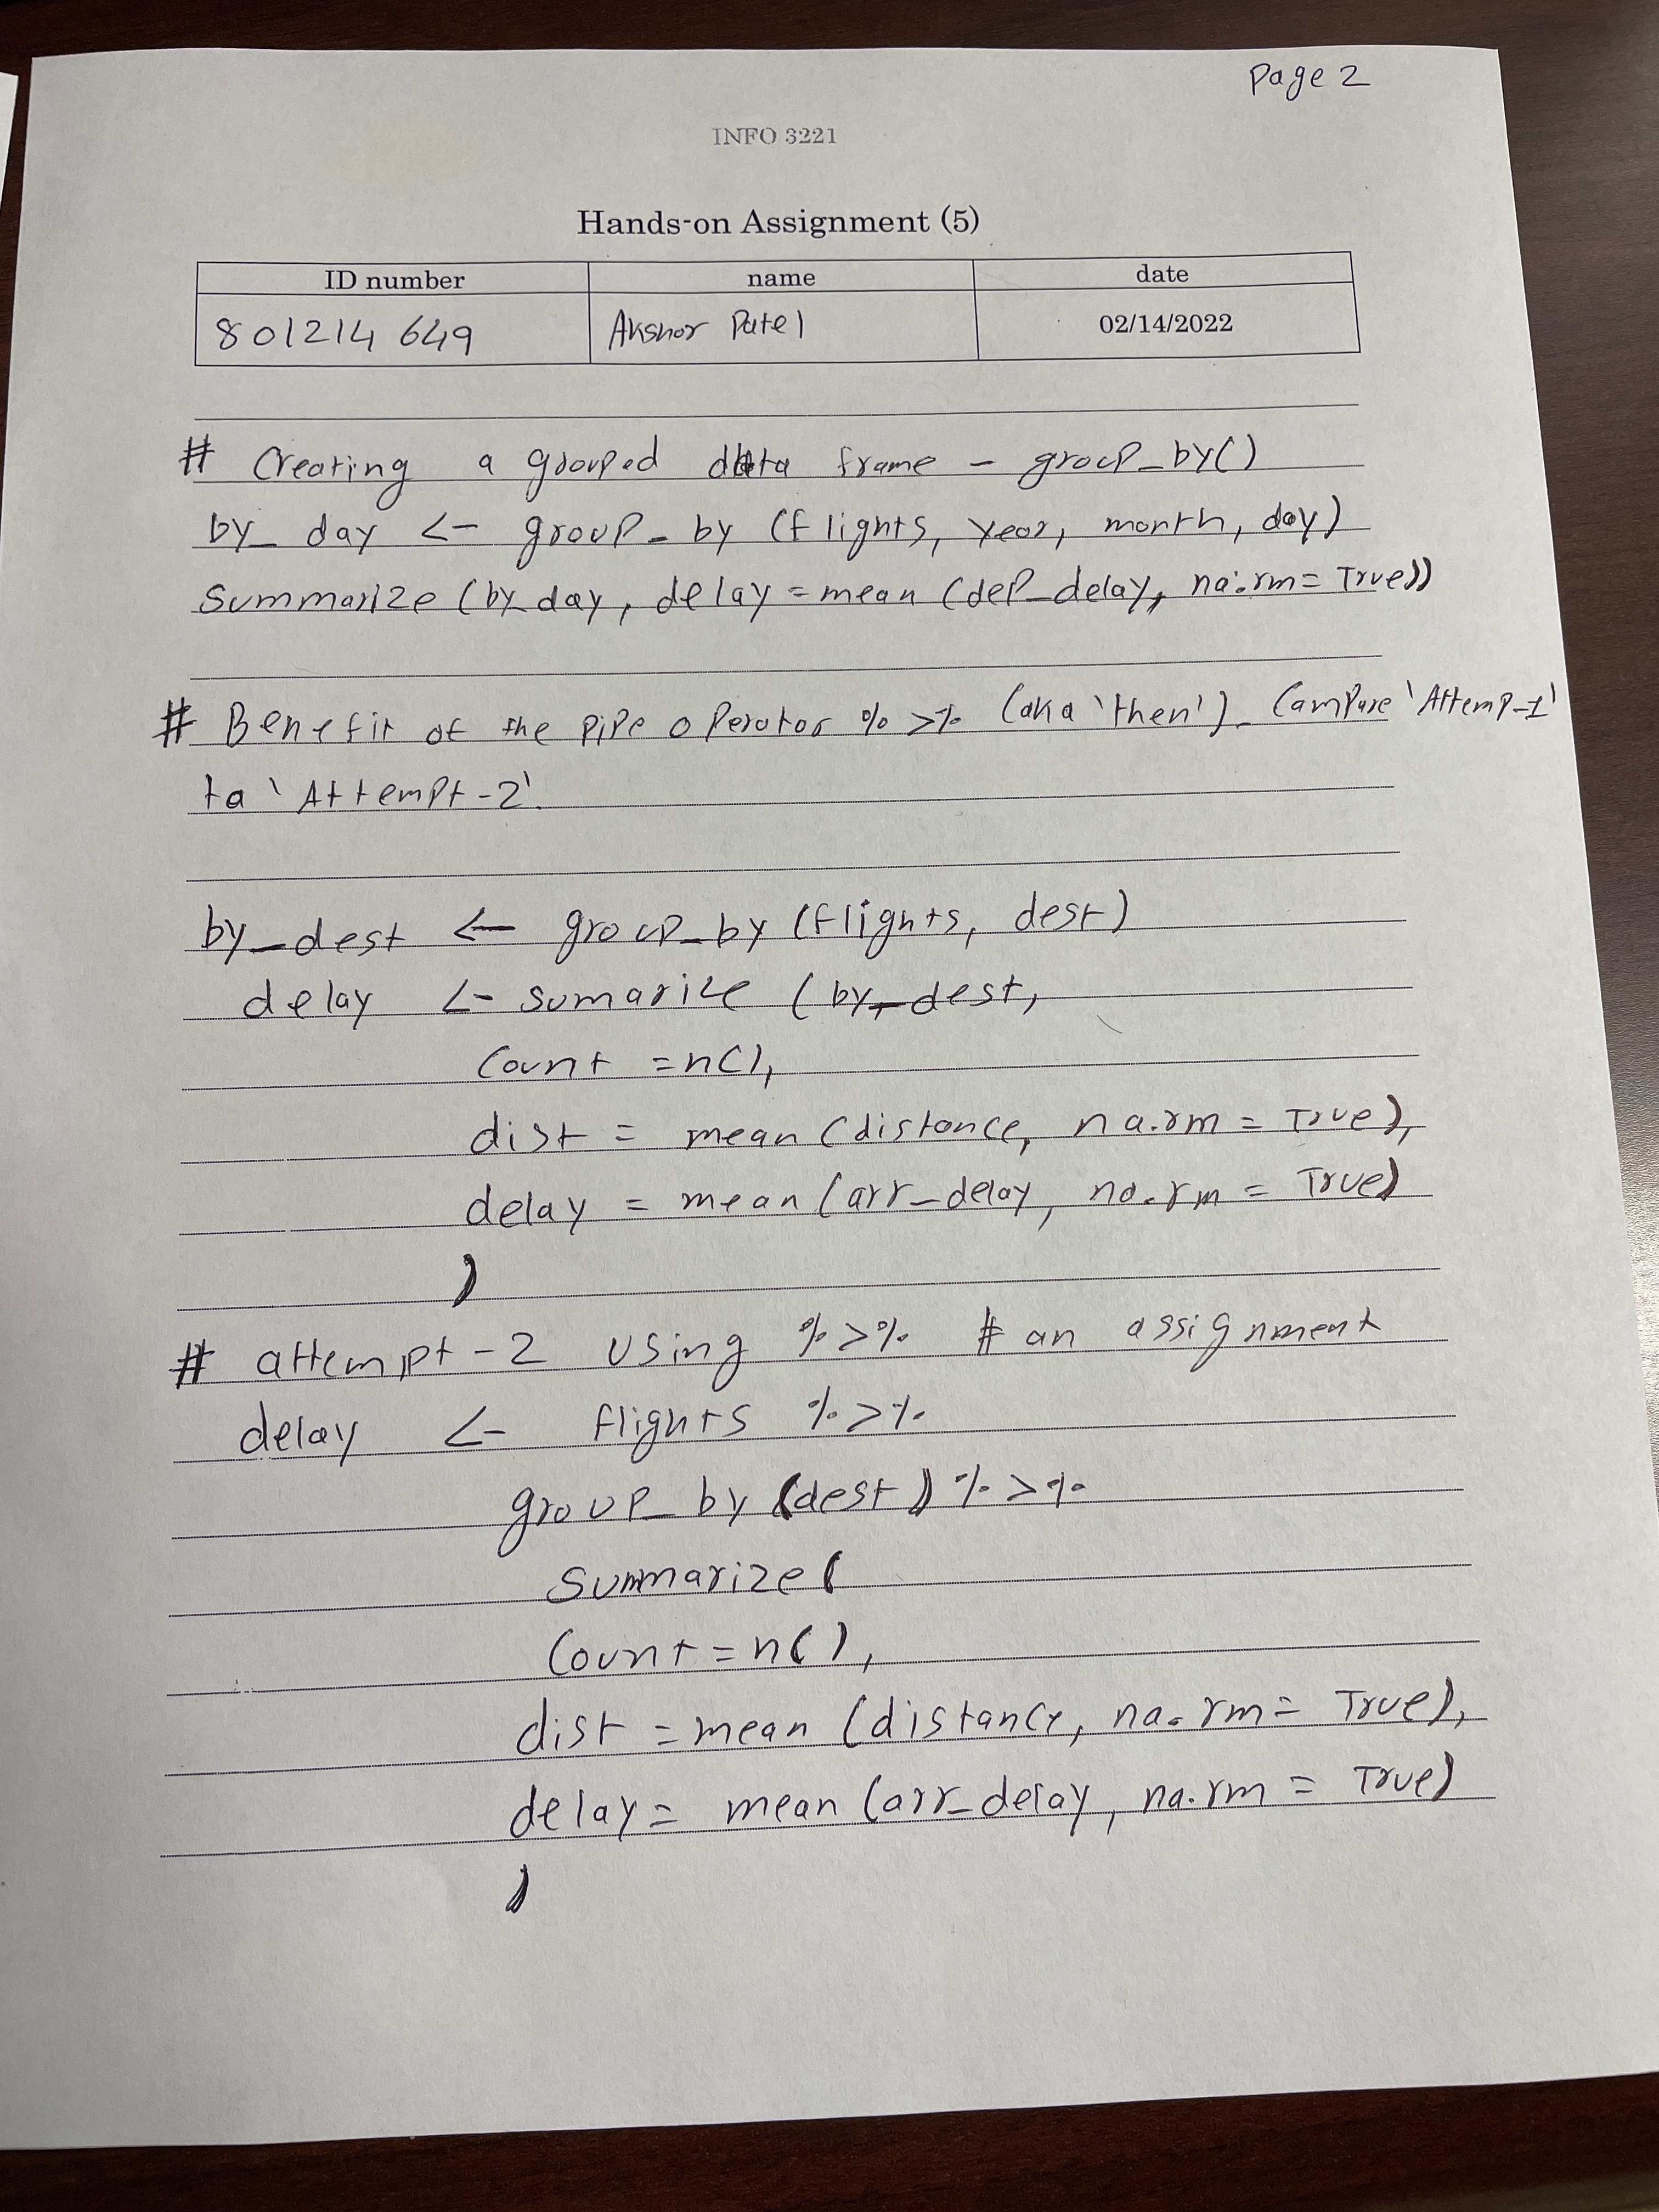 Page 2
INFO 3221
Hands-on Assignment (5)
ID number name date
801214649 Akshar Patel 02/14/2022
# Creating a grouped data frame - group_by()
by_day <- group_by (flights, year, month, day)
Summarize (by_day, delay = mean (dep_delay, na.rm = True))
# Benefit of the pipe operator %>% (aka 'then'). Compare 'Attemp-1'
to 'Attempt-2'.
by_dest <- group_by (flights, dest)
delay <- sumarize (by_dest,
Count = n(),
dist = mean (distance, na.rm = True),
delay = mean (arr_delay, na.rm = True)
)
# attempt-2 using %>% # an assignment
delay <- flights %>%
group_by (dest) %>%
Summarize (
Count = n(),
dist = mean (distance, na.rm = True),
delay = mean (arr_delay, na.rm = True)
)